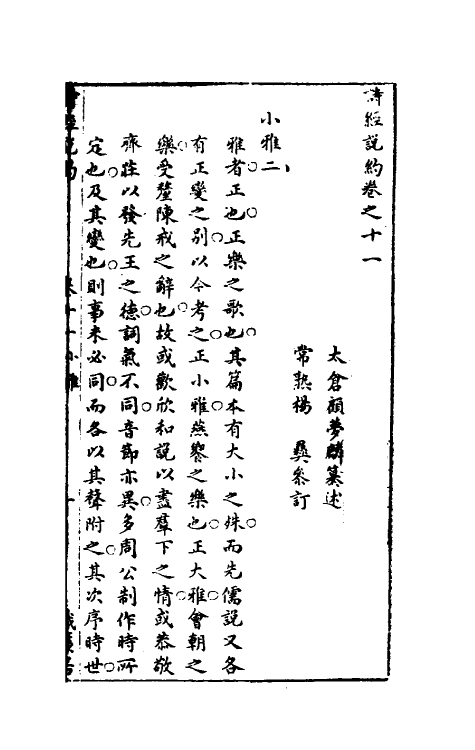 詩經説約卷之十一
太倉顧夢麟纂述
常熟楊彝參訂
小雅二
雅者正也正樂之歌也其篇本有大小之殊而先儒説又各
有正變之别以今考之正小雅燕饗之樂也正大雅會朝之
樂受釐陳戒之辭也故或歡欣和説以盡羣下之情或恭敬
齊莊以發先王之德詞氣不同音節亦異多周公制作時所
定也及其變也則事未必同而各以其聲附之其次序時世